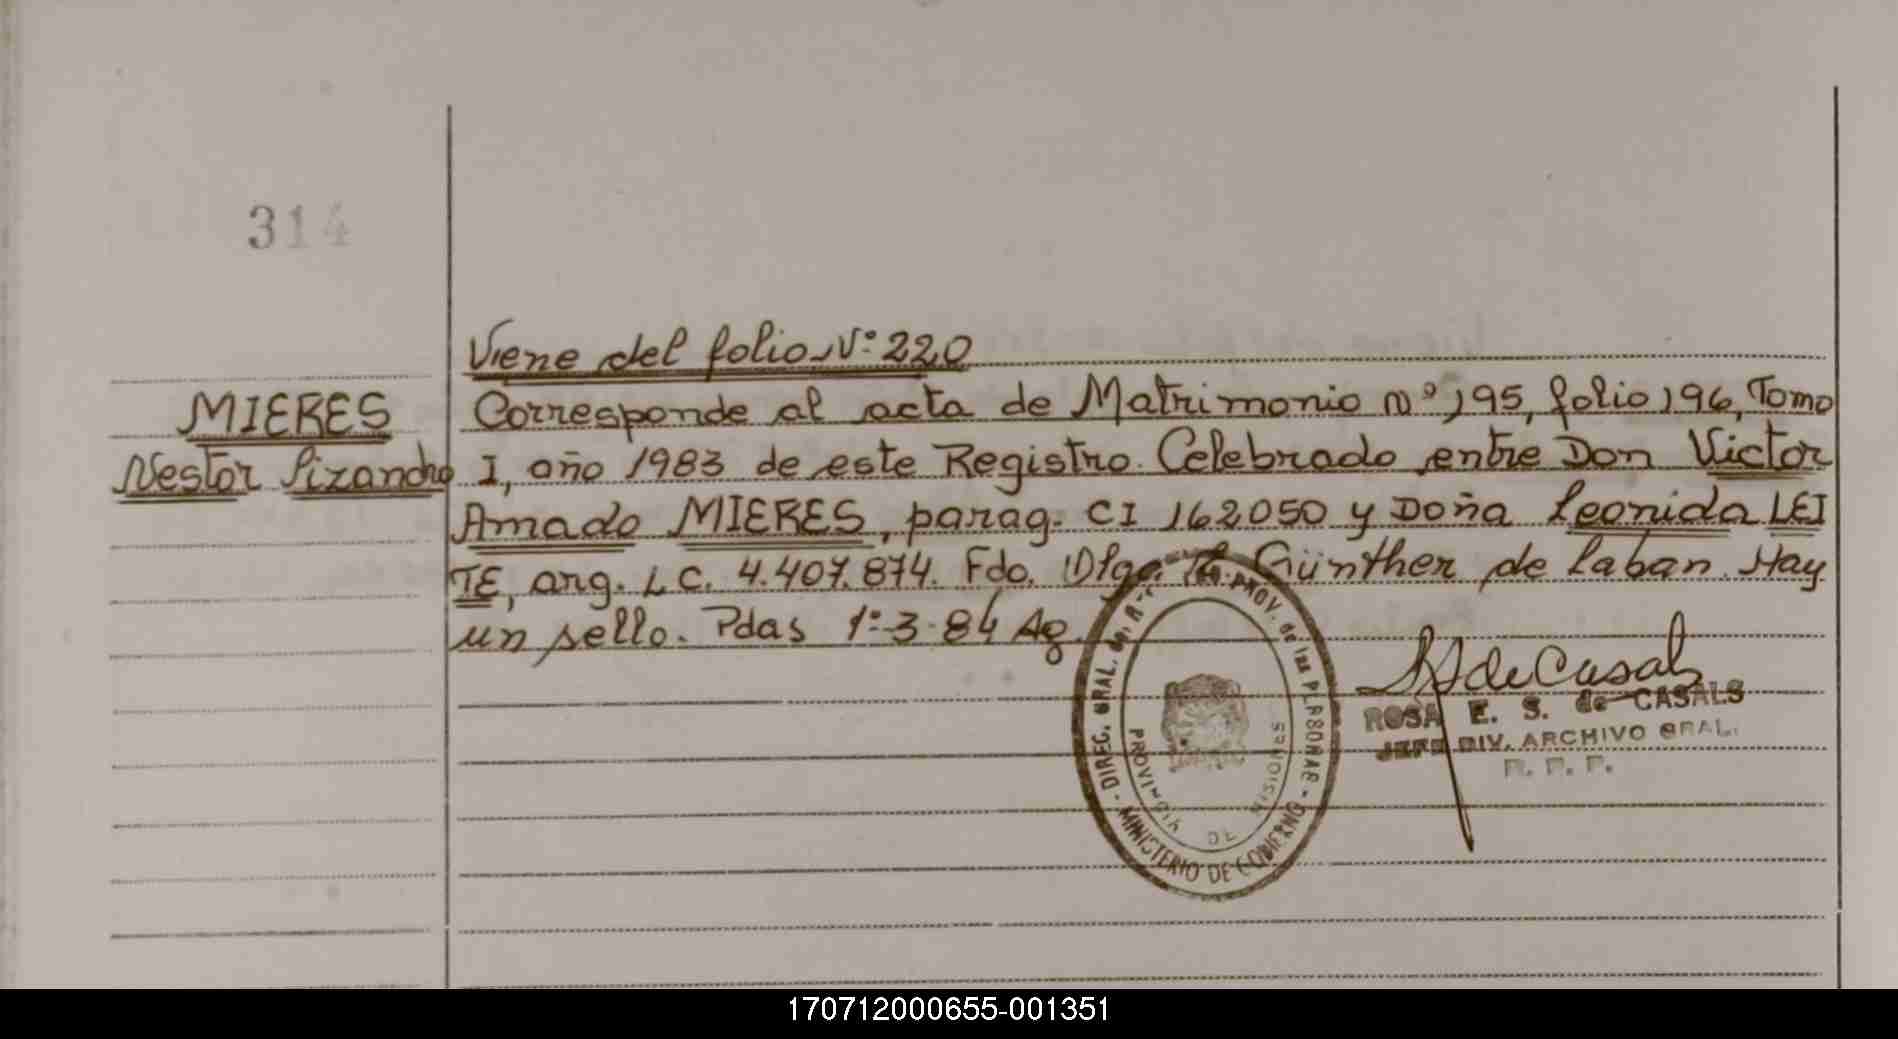 314
Viene del folio Nº 220
MIERES
Nestor Lizandro
Corresponde al acta de Matrimonio nº 195, folio 196, Tomo
I, año 1983 de este Registro. Celebrado entre Don Victor
Amado MIERES, parag. CI 162050 y Doña Leonida LEI
TE, arg. L C. 4.407.874. Fdo. Olga Günther de Laban. Hay
un sello. Pdas 1º-3-84 Ag.
DIREC. GRAL. del R. PROV. de las PERSONAS - MINISTERIO DE GOBIERNO -
PROVINCIA DE MISIONES
de Casals
ROSA E. S. de CASALS
JEFE DIV. ARCHIVO GRAL.
R. P. P.
170712000655-001351